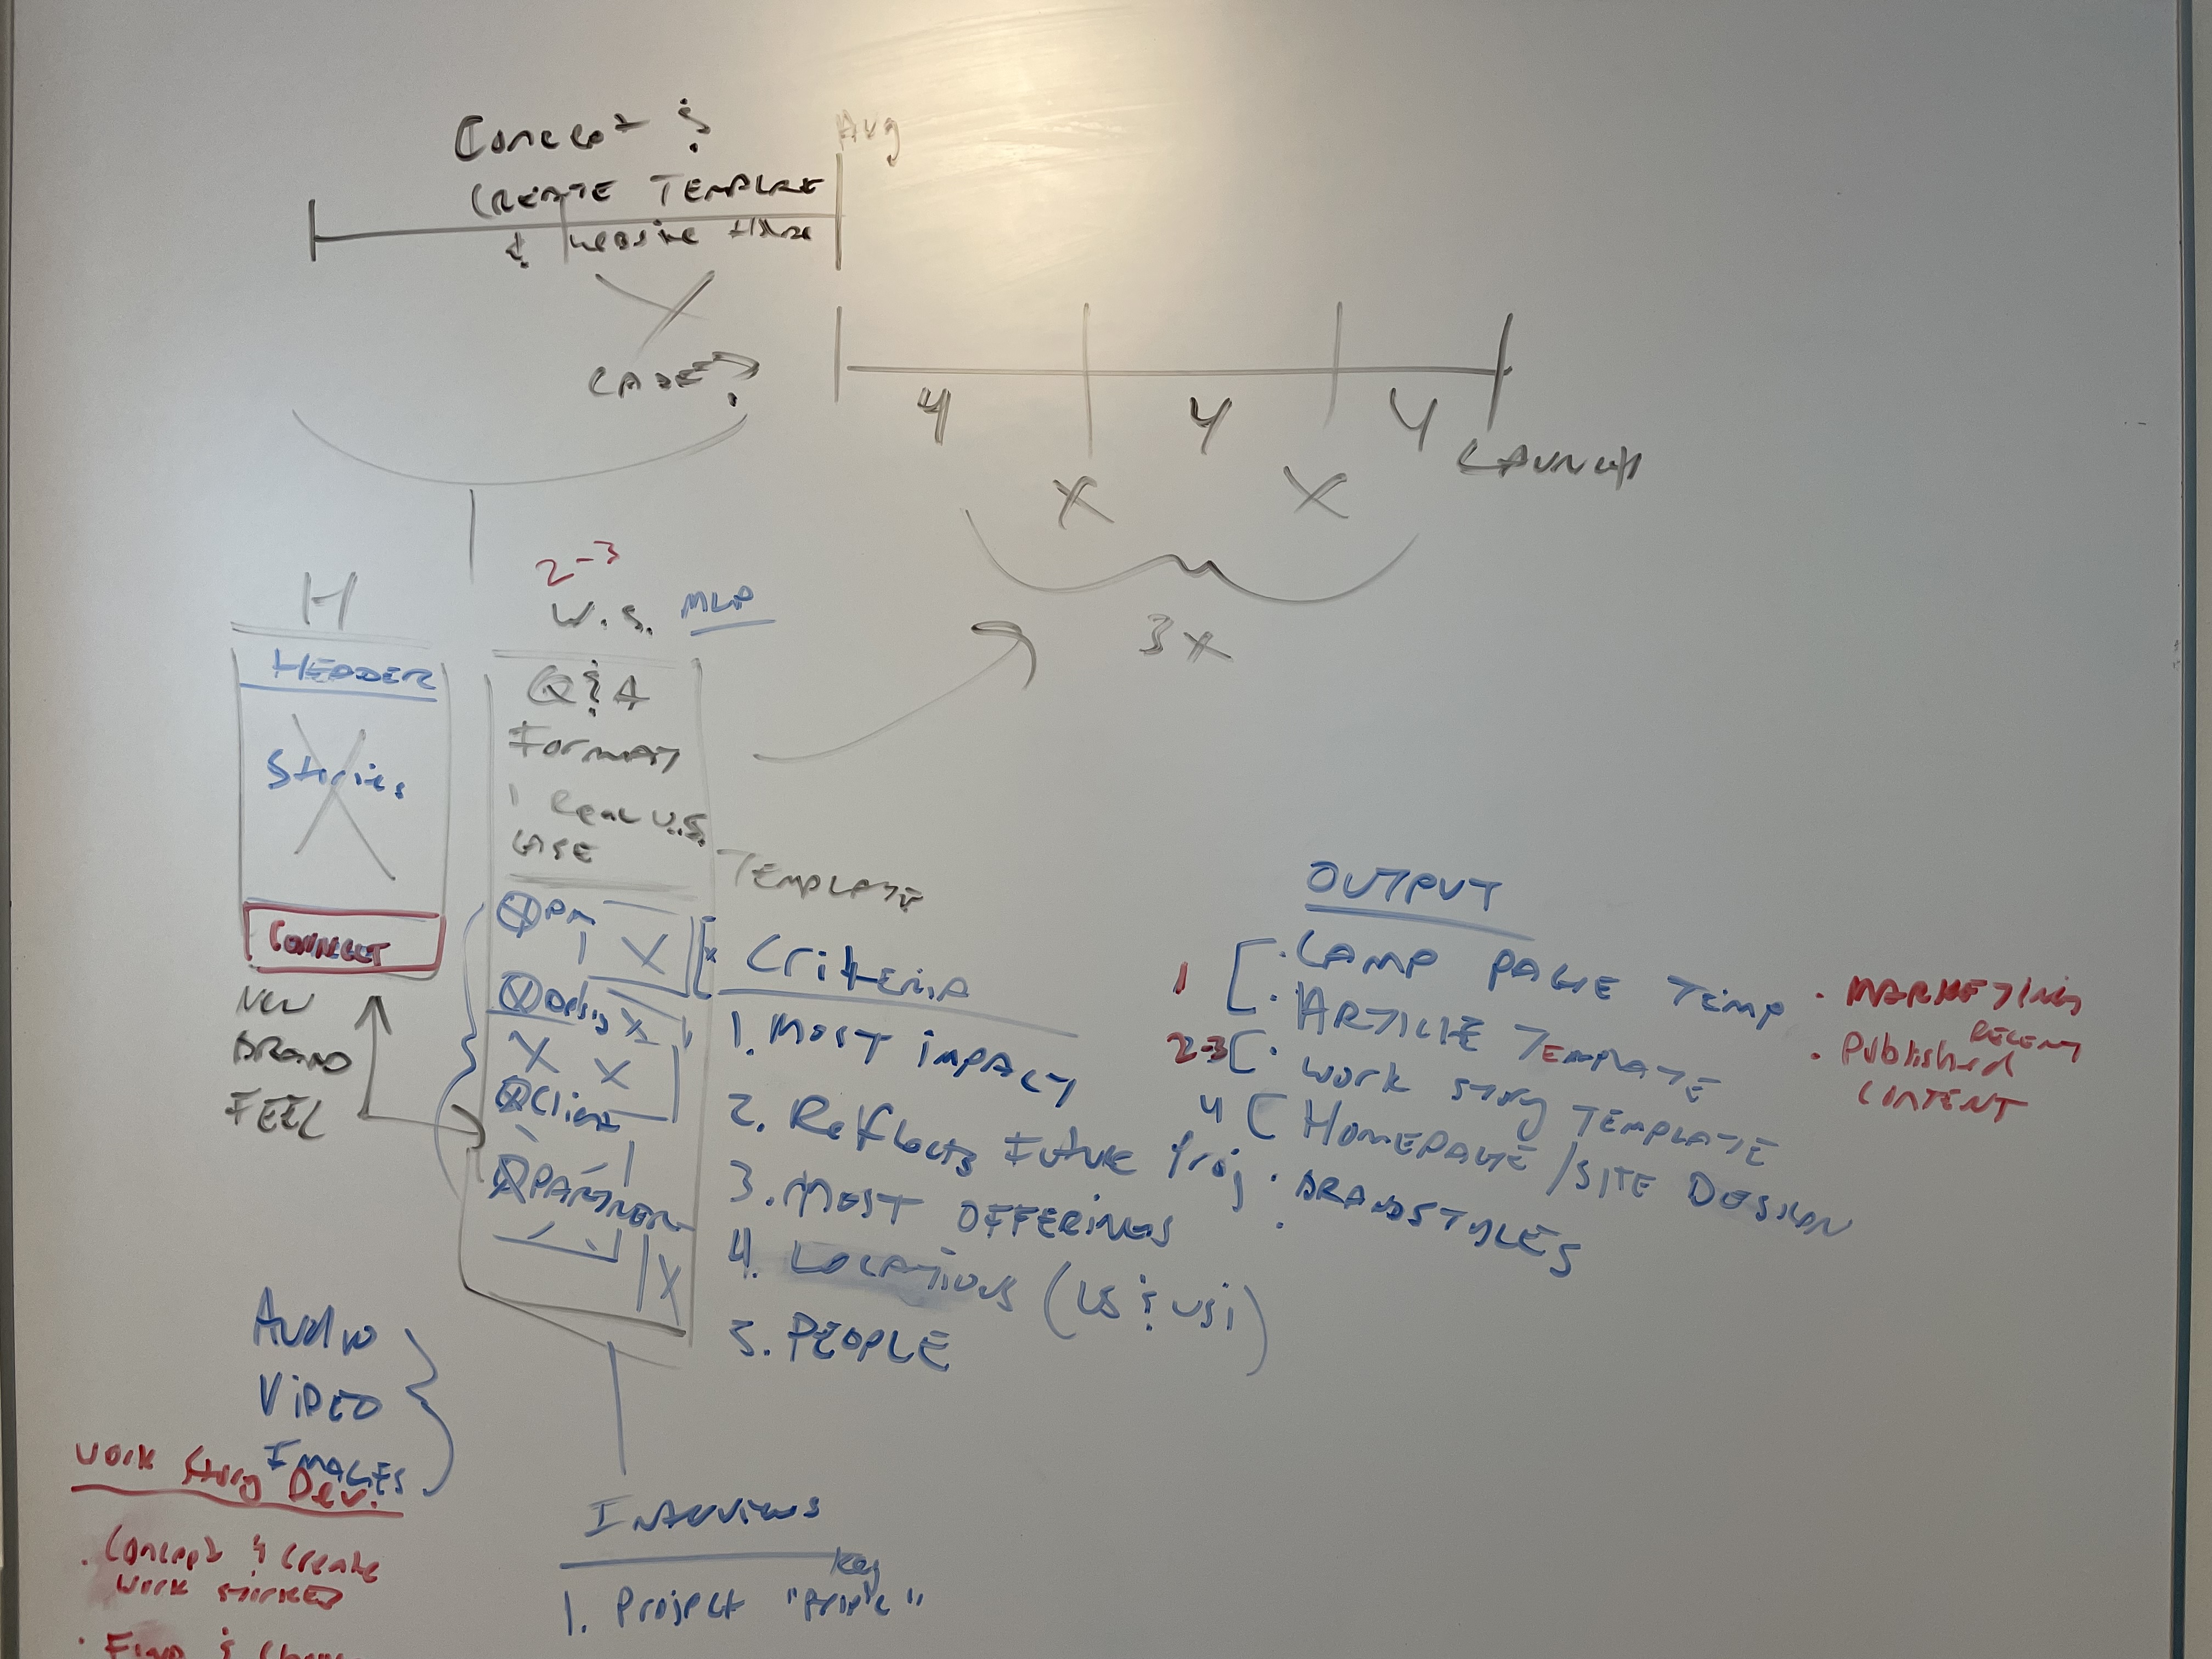 Concept &
CREATE TEMPLATE
&
Aug
CADE?
4 4 4
LAUNCH
X X
3X
H
HEADER
Stories
CONNECT
NEW
BRAND
FEEL
2-3
W.S. MLP
Q & A
FORMAT
1 REAL W.S.
CASE
TEMPLATE
PM
X
X
X X
Client
PARTNER
X
Criteria
1. MOST IMPACT
2. Reflects Future Proj
3. MOST OFFERINGS
4. LOCATIONS (US & USI)
5. PEOPLE
OUTPUT
1 [ · CAMP PAGE TEMP
· ARTICLE TEMPLATE
2-3 [ · WORK STORY TEMPLATE
4 [ HOMEPAGE/SITE DESIGN
· BRAND STYLES
· MARKETING
RECENT
· Published
CONTENT
Audio
VIDEO
IMAGES
WORK Story Dev.
· Concept & Create
WORK STORIES
Interviews
Key
1. Project